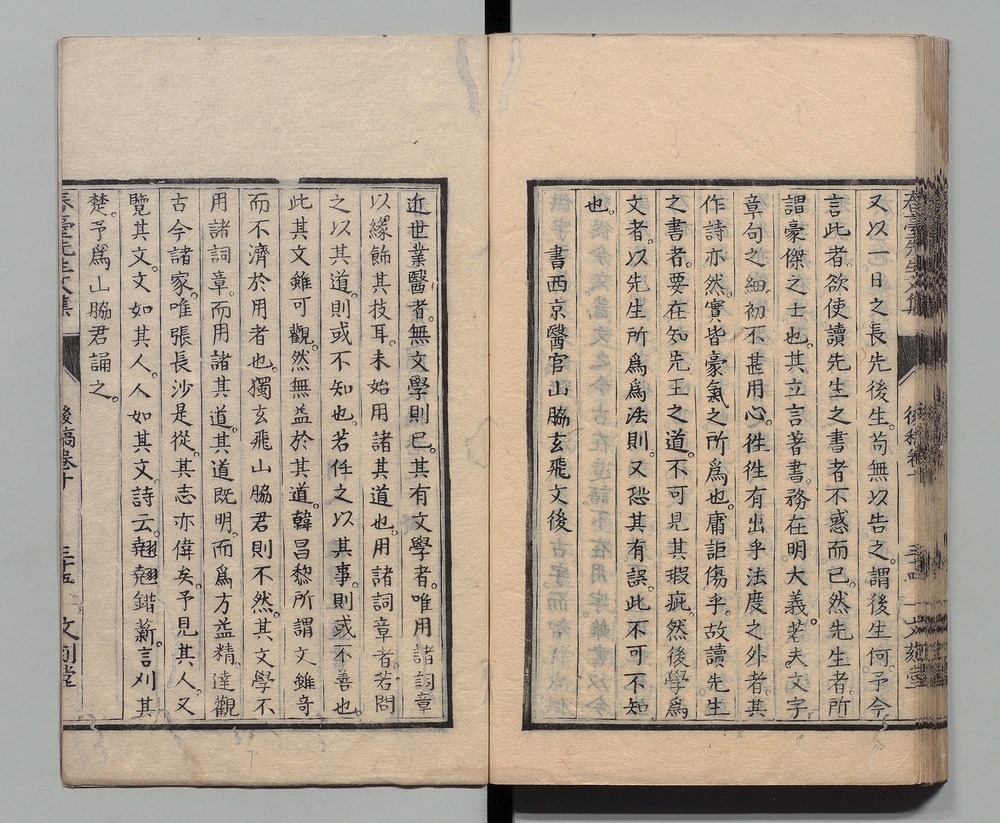 又以一日之長先後生。苟無以告之。謂後生何。予今
言此者。欲使讀先生之書者不惑而已。然先生者。所
謂豪傑之士也。其立言著書。務在明大義。若夫文字
章句之細。初不甚用心。徃徃有出乎法度之外者。其
作詩亦然。實皆豪氣之所爲也。庸詎傷乎。故讀先生
之書者。要在知先王之道。不可見其瑕疵。然後學爲
文者。以先生所爲爲法則。又恐其有誤。此不可不知
也。
書西京醫官山脇玄飛文後
近世業醫者。無文學則已。其有文學者。唯用諸詞章
以緣飾其技耳。未始用諸其道也。用諸詞章者。若問
之以其道。則或不知也。若任之以其事。則或不善也。
此其文雖可觀。然無益於其道。韓昌黎所謂文雖奇
而不濟於用者也。獨玄飛山脇君則不然。其文學不
用諸詞章。而用諸其道。其道既明。而爲方益精。達觀
古今諸家。唯張長沙是從。其志亦偉矣。予見其人。又
覽其文。文如其人。人如其文。詩云。翹翹錯薪。言刈其
楚。予爲山脇君誦之。
春臺先生文集 後稿卷十 三十五